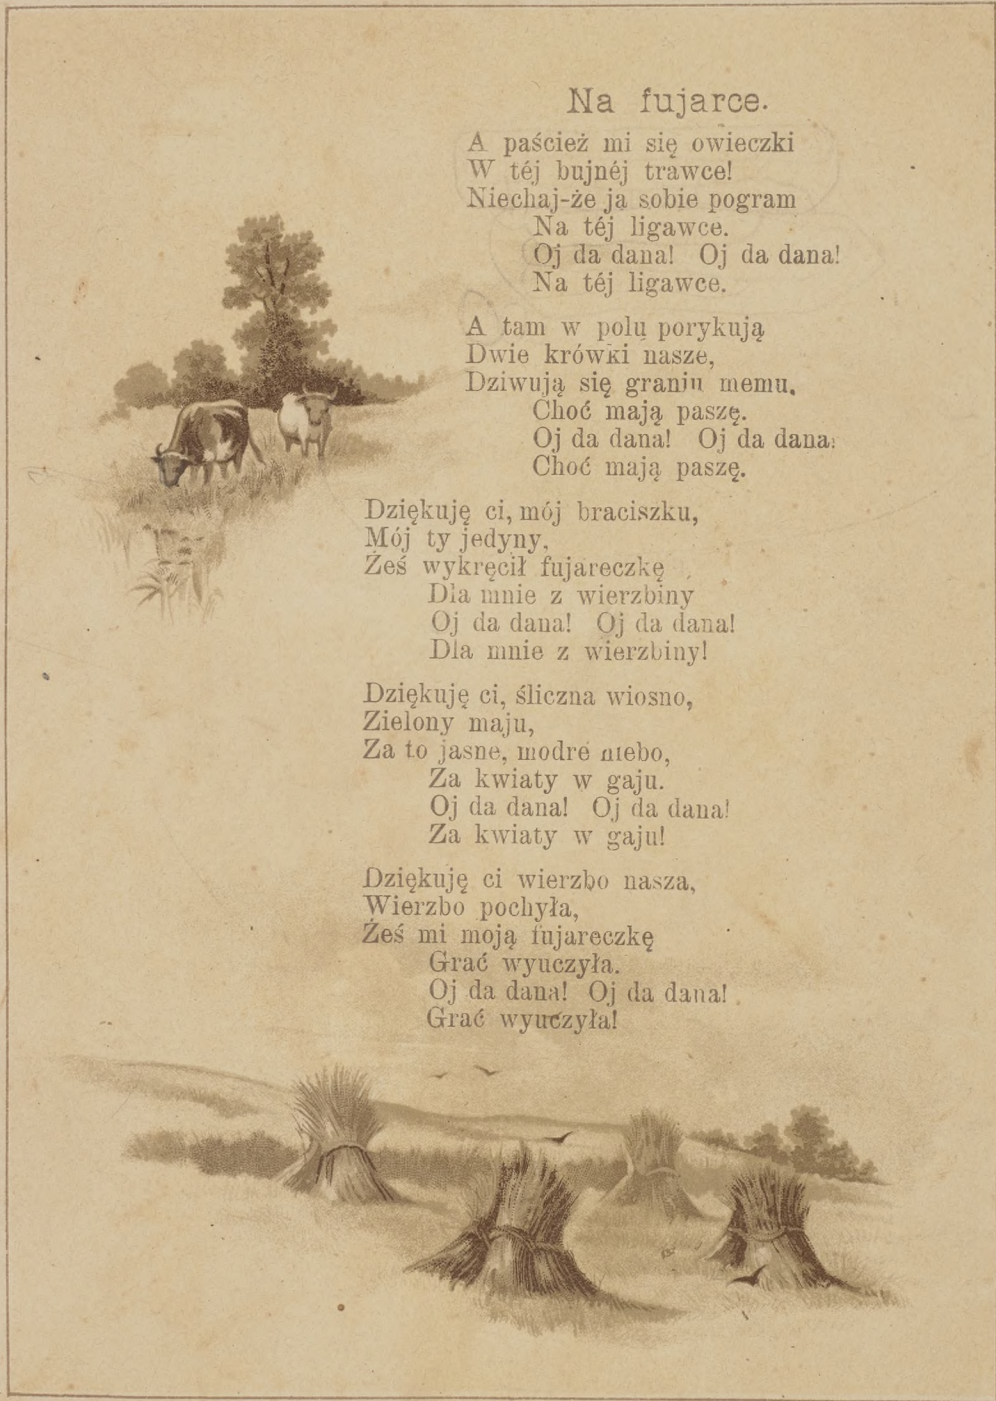 Na fujarce.
A paścież mi się owieczki
W téj bujnéj trawce!
Niechaj-że ja sobie pogram
Na téj ligawce.
Oj da dana! Oj da dana!
Na téj ligawce.
A tam w polu porykują
Dwie krówki nasze,
Dziwują się graniu memu,
Choć mają paszę.
Oj da dana! Oj da dana!
Choć mają paszę.
Dziękuję ci, mój braciszku,
Mój ty jedyny,
Żeś wykręcił fujareczkę
Dla mnie z wierzbiny
Oj da dana! Oj da dana!
Dla mnie z wierzbiny!
Dziękuję ci, śliczna wiosno,
Zielony maju,
Za to jasne, modre niebo,
Za kwiaty w gaju.
Oj da dana! Oj da dana!
Za kwiaty w gaju!
Dziękuję ci wierzbo nasza,
Wierzbo pochyła,
Żeś mi moją fujareczkę
Grać wyuczyła.
Oj da dana! Oj da dana!
Grać wyuczyła!